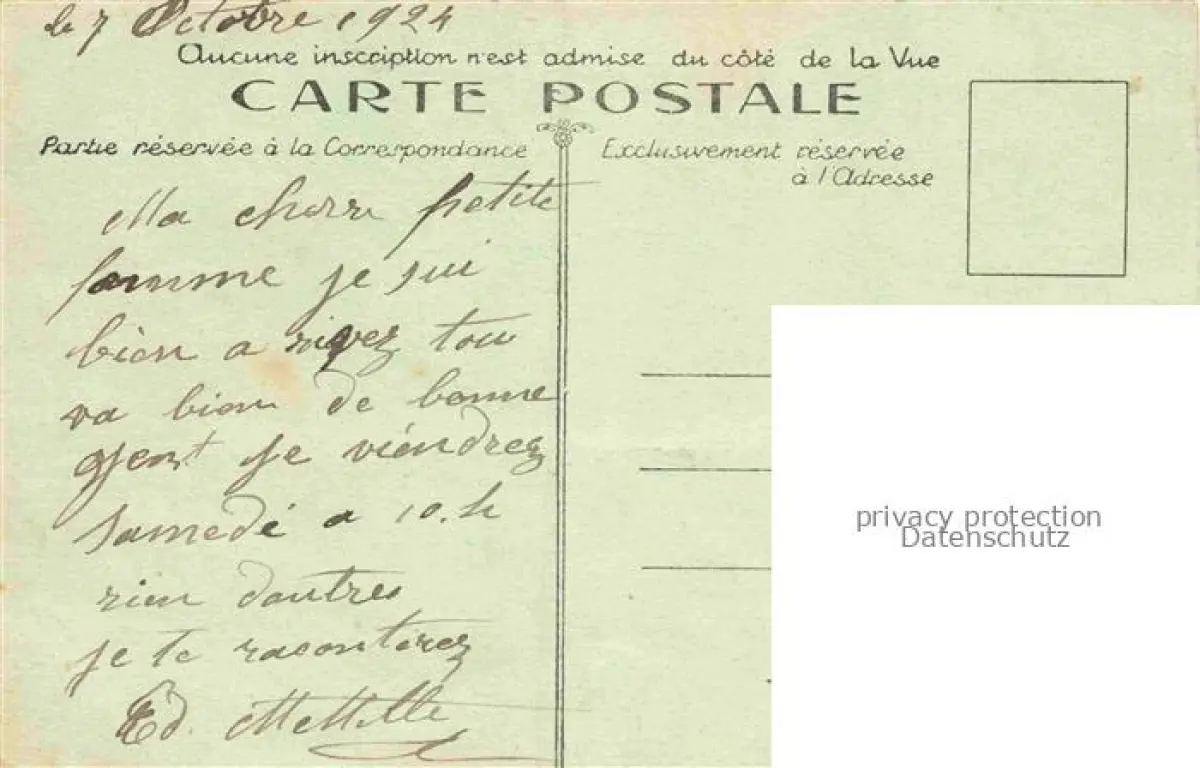 le 7 Octobre 1924
Aucune inscription n'est admise du côté de la Vue
CARTE POSTALE
Partie réservée à la Correspondance
Exclusivement réservée
à l'Adresse
Ma cherre petite
famme je sui
bien a rivez tou
va bien de bonne
gent je viendrez
samedi a 10.h
rien dautres
je te raconterez
Ed.
privacy protection
Datenschutz